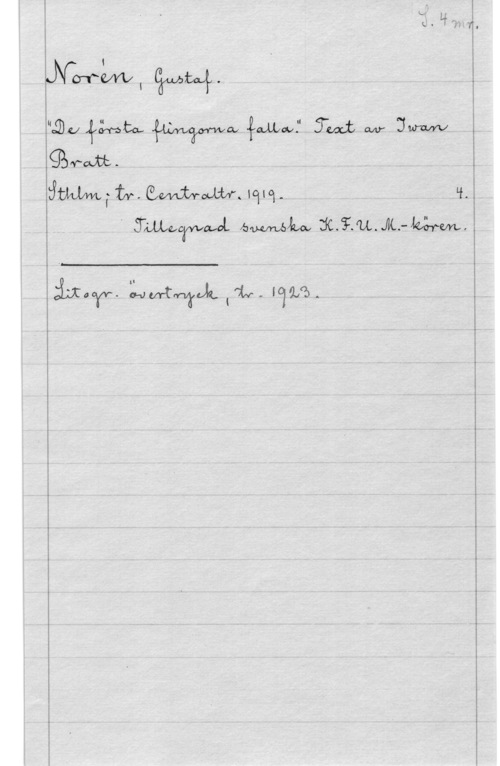 S. 4 mr.
Norén, Gustaf.
"De första flingorna falla." Text av Iwan
Bratt.
Sthlm; tr. Centraltr. 1919. 4.
Tillegnad svenska K.F.U.M.-kören.
Litogr. övertryck, tr. 1923.